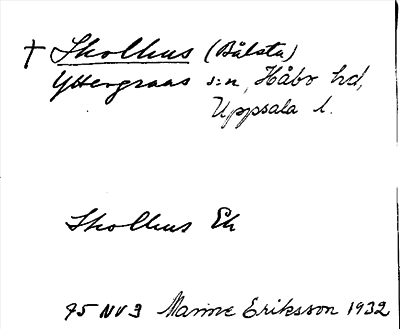 † Skolhus (Bålsta)
Yttergrans s:n, Håbo hd,
Uppsala l.
Skolhus Ek
95 NV 3 Manne Eriksson 1932